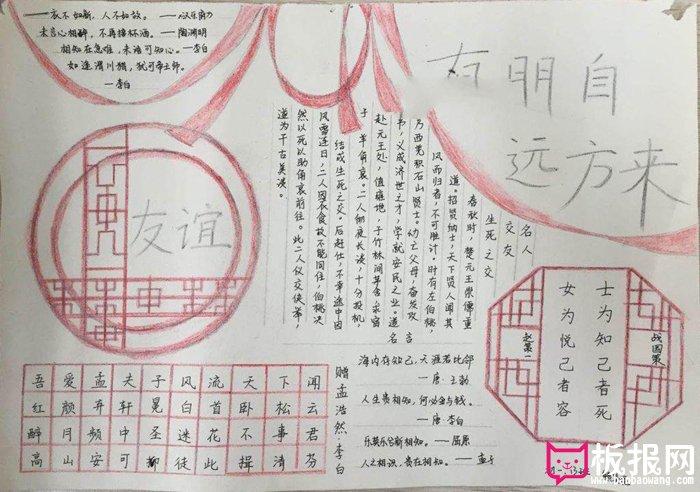 ——衣不如新，人不如故。——汉乐府
未言心相醉，不再接杯酒。——陶渊明
相知在急难，未语可知心。——李白
如逢渭川猎，犹可帝王师。
——李白
有朋自
远方来
友谊
名人
交友
生死之交
春秋时，楚元王崇儒重
道。招贤纳士，天下贤人闻其
风而归者，不可胜计。时有左伯桃，
乃西羌积石山贤士。幼亡父母，奋发攻
书，义成济世之才，学就安民之业。道名
赴元王处，值雍地，于竹林间草舍求宿
子羊角哀。二人彻夜长谈，十分投机，
结成生死之交。后赴仕，不幸途中因
风雪连日，二人因衣食故不能同往，伯桃决
然以死以助角哀前往。此二人仪交侠事，
遂为千古美谈。
士为知己者死
女为悦己者容
战国策
赵策一
吾爱孟夫子风流天下闻
红颜弃轩冕白首卧松云
醉月频中圣迷花不事君
高山安可仰徒此揖清芬
赠孟浩然·李白
海内存知己，天涯若比邻
——唐·王勃
人生贵相知，何必金与钱。
——唐·李白
乐莫乐兮新相知。——屈原
人之相识，贵在相知。——孟子
板报网
www.banbaowang.com